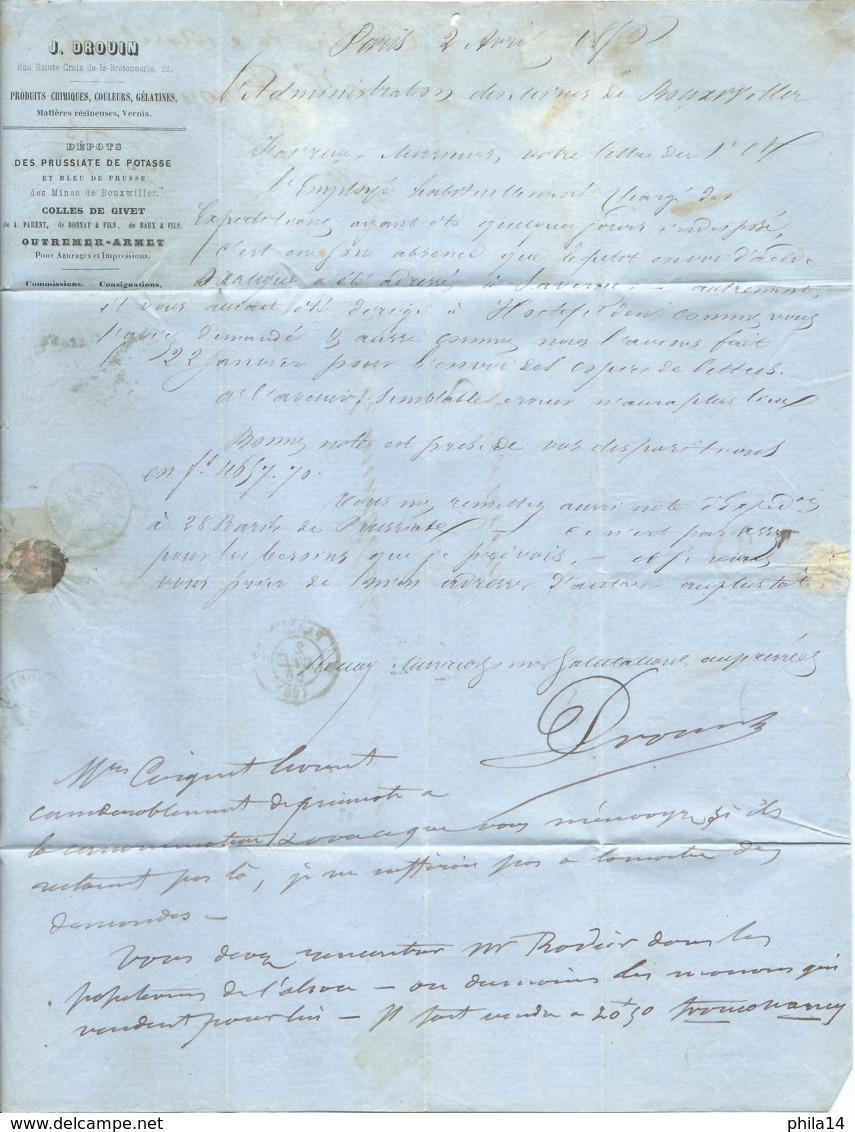 J. DROUIN
Rue Sainte Croix de-la-Bretonnerie, 21.
PRODUITS CHIMIQUES, COULEURS, GÉLATINES,
Matières résineuses, Vernis.
DÉPOTS
DES PRUSSIATE DE POTASSE
ET BLEU DE PRUSSE
des Mines de Bouxwiller.
COLLES DE GIVET
de A. PARENT, de DONNAY & FILS, de BAUX & FILS.
OUTREMER-ARMET
Pour Azurages et Impressions.
Commissions. - Consignations.
Paris 2 Avril
L'Administration des Mines de Bouxwiller
Messieurs, votre lettre du 1er Ct
l'Employé habituellement chargé des
Expeditions ayant été quelques jours indisposé,
c'est en son absence que le petit envoi d'acide
oxalique a été adressé à Saverne, - autrement,
il vous aurait été dirigé à Hochfelden comme vous
l'aviez demandé & aussi comme nous l'avions fait
le 22 Janvier pour l'envoi des copies de lettres.
à l'avenir, semblable erreur n'aura plus lieu
Bonne note est prise de vos dispositions
en fs. 4657.70.
Vous me remettez aussi note d'Expeder
à 28 Barils de Prussiate - ce n'est pas assez
pour les besoins que je prévois, - et je viens
vous prier de m'en adresser d'autres au plutôt.
Messieurs mes Salutations empressées
Drouin
Mrs Coignet livrent
considerablement de prussiate a
la consommation
restaient pas là, je ne suffirais pas a la moitié des
demandes -
Vous devez rencontrer Mr Rodier dans les
papeteries de l'alsace - ou du moins les maisons qui
vendent pour lui - Il fait vendre a 20 50 franco Nancy
phila14